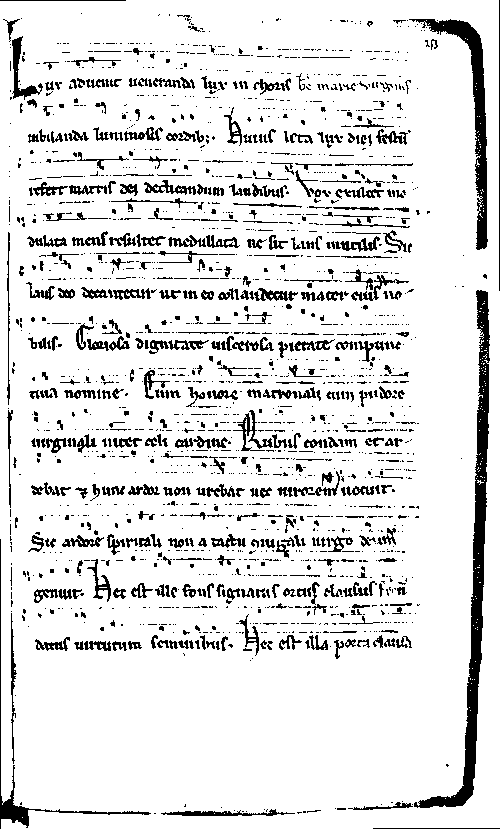 213
Lux advenit veneranda lux in choris bē marie virginis
iubilanda luminosis cordibꝫ. Huius leta lux diei festū
refert matris dei dedicandum laudibus. Vox exultet mo
dulata mens resultet medullata ne sit laus inutilis. Sic
laus deo decantetur ut in eo collaudetur mater eius no
bilis. Gloriosa dignitate viscerosa pietate compunc
tiva nomine. Cum honore matronali cum pudore
virginali nitet celi cardine. Rubus condam et ar
debat ⁊ hunc ardor non urebat nec virorem nocuit.
Sic ardore spiritali non a tactu coniugali virgo deum
genuit. Hec est ille fons signatus ortus clausus
datus virtutum seminibus. Hec est illa porta clausa